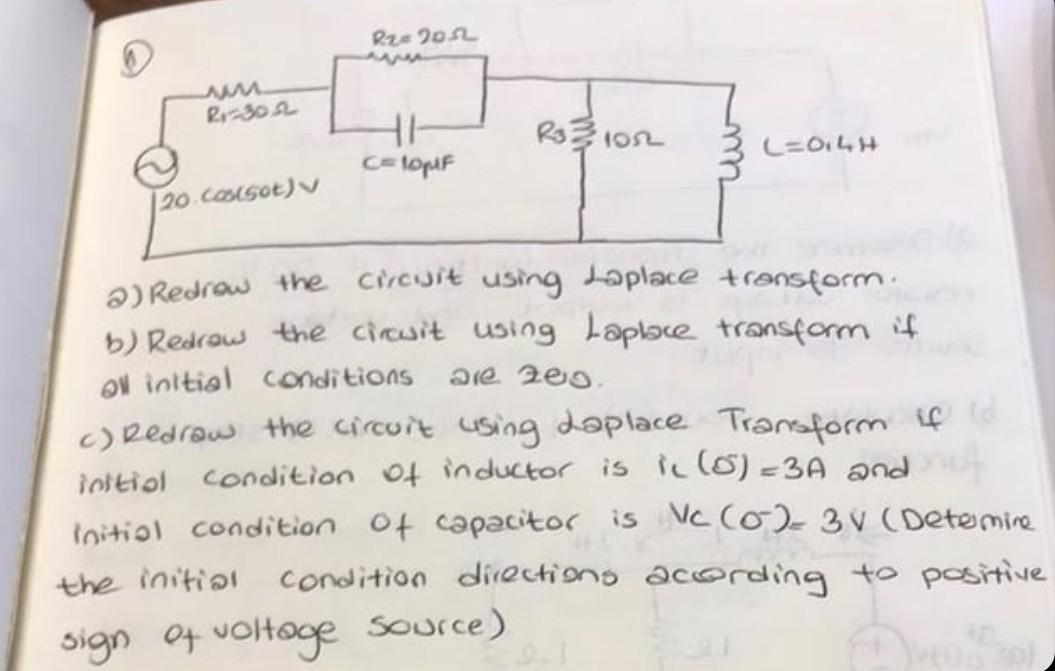 1)
R2=20Ω
R1=30Ω
C=10μF
R3 10Ω
L=0,4H
20.cos(50t)V
a) Redraw the circuit using Laplace transform.
b) Redraw the circuit using Laplace transform if
all initial conditions are zero.
c) Redraw the circuit using Laplace Transform if
initial condition of inductor is iL(0⁻)=3A and
initial condition of capacitor is Vc(0⁻)=3V (Determine
the initial condition directions according to positive
sign of voltage source)